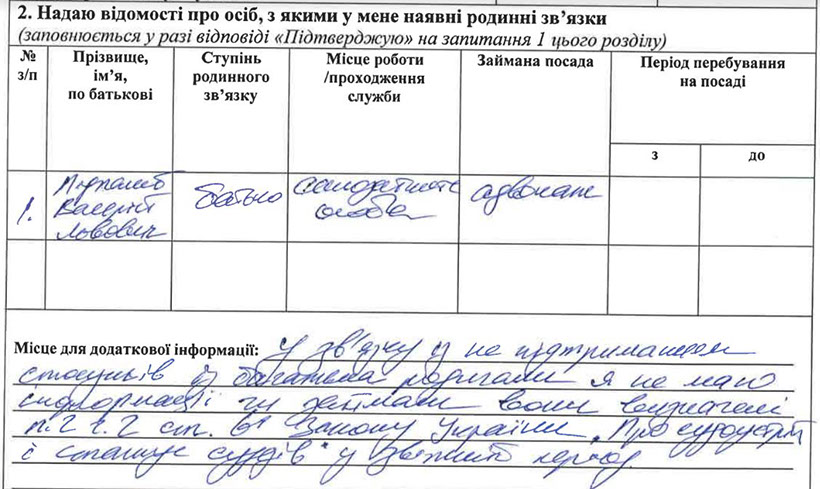 2. Надаю відомості про осіб, з якими у мене наявні родинні зв'язки
(заповнюється у разі відповіді «Підтверджую» на запитання 1 цього розділу)
№ з/п
Прізвище, ім'я, по батькові
Ступінь родинного зв'язку
Місце роботи /проходження служби
Займана посада
Період перебування на посаді
з
до
1.
Валерій
Львович
батько
самозайнята
особа
адвокат
Місце для додаткової інформації: У зв'язку із не підтриманням
стосунків із багатьма родичами я не маю
інформації чи займали вони визначені
п. 2 ч. 2 ст. 61 Закону України „Про судоустрій
і статус суддів" у звітний період.